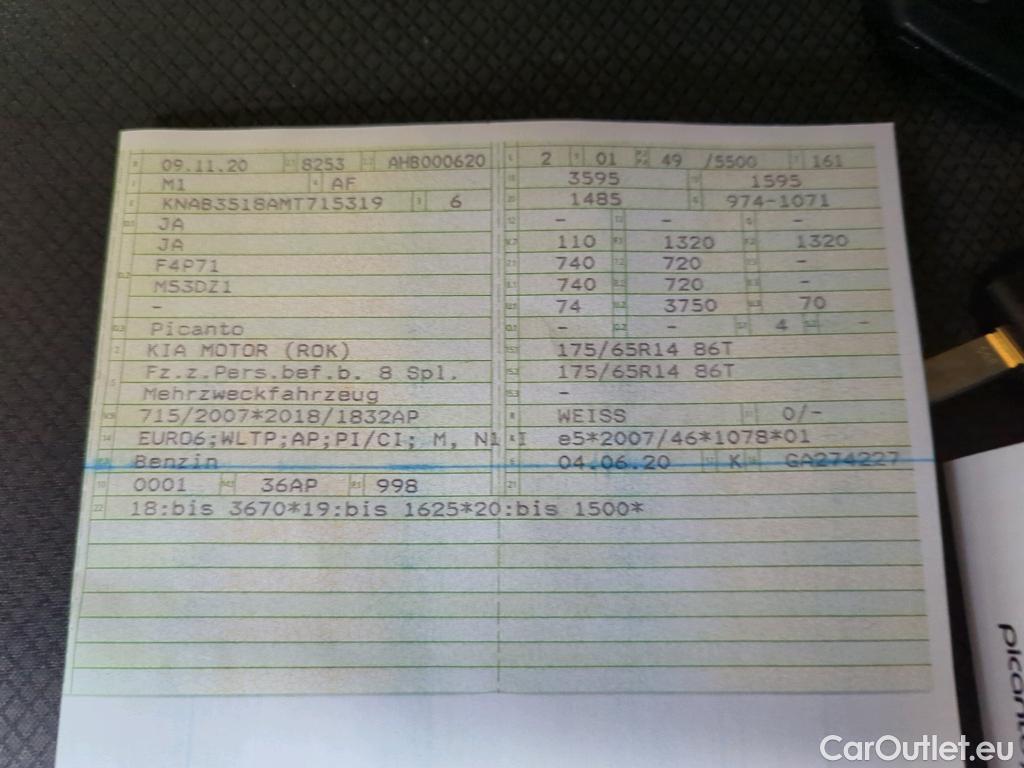 09.11.20 8253 AHB000620
M1 AF
KNAB3518AMT715319 6
JA
JA
F4P71
M53DZ1
-
Picanto
KIA MOTOR (ROK)
Fz.z.Pers.bef.b. 8 Spl.
Mehrzweckfahrzeug
715/2007*2018/1832AP
EURO6;WLTP;AP;PI/CI; M, N1 I
Benzin
0001 36AP 998
18:bis 3670*19:bis 1625*20:bis 1500*
2 01 49 /5500 161
3595 1595
1485 974-1071
- - -
110 1320 1320
740 720 -
740 720 -
74 3750 70
- - 4 -
175/65R14 86T
175/65R14 86T
-
WEISS 0/-
e5*2007/46*1078*01
04.06.20 K GA274227
picanto
CarOutlet.eu